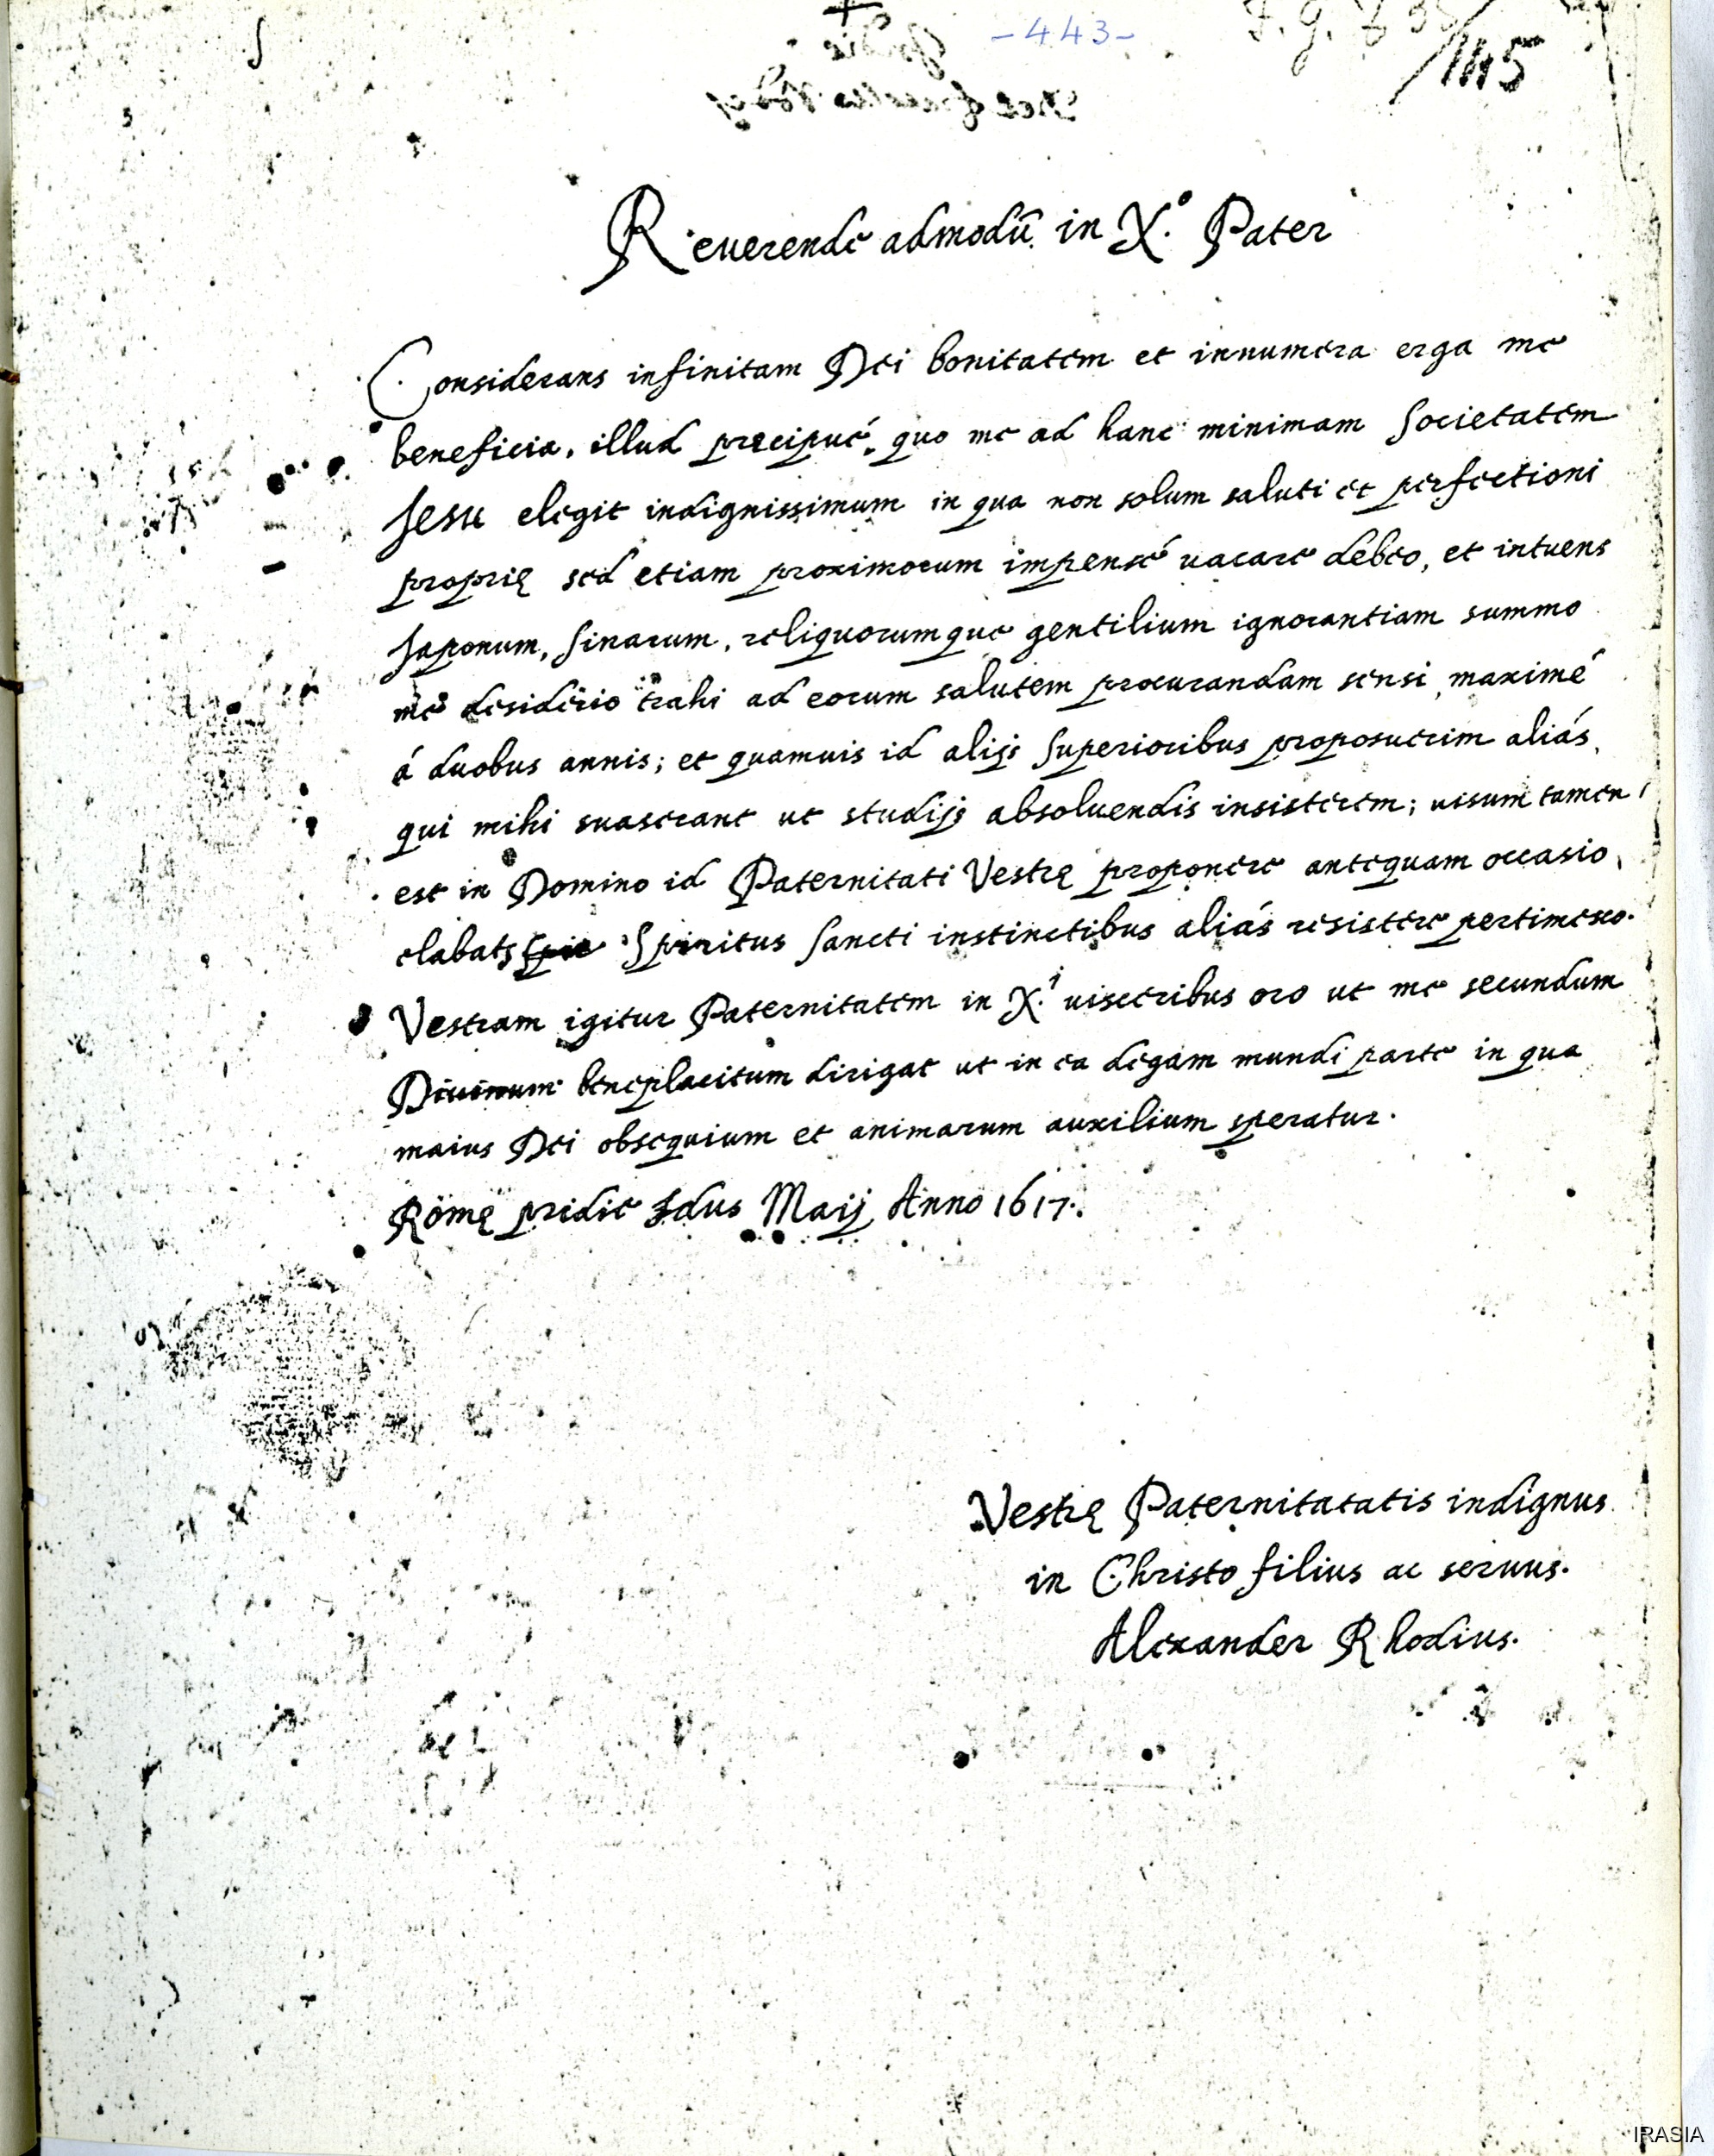 -443-
Reuerende admodū in X.º Pater
Considerans infinitam Dei bonitatem et innumera erga me
beneficia, illud præcipué, quo me ad hanc minimam Societatem
Jesu elegit indignissimum in qua non solum saluti et perfectioni
proprię sed etiam proximorum impensé uacare debeo, et intuens
Japonum, Sinarum, reliquorumque gentilium ignorantiam summo
me desiderio trahi ad eorum salutem procurandam sensi, maximé
á duobus annis; et quamuis id alijs Superioribus proposuerim aliás,
qui mihi suaserant ut studijs absoluendis insisterem; uisum tamen
est in Domino id Paternitati Vestrę proponere antequam occasio
elabatr Spiritus Sancti instinctibus aliás resistere pertimesco.
Vestram igitur Paternitatem in X.i uisceribus oro ut me secundum
Diuinum beneplacitum dirigat ut in ea degam mundi parte in qua
maius Dei obsequium et animarum auxilium speratur.
Romę pridie Idus Maij Anno 1617.
Vestrę Paternitatatis indignus
in Christo filius ac seruus.
Alexander Rhodius.
IRASIA